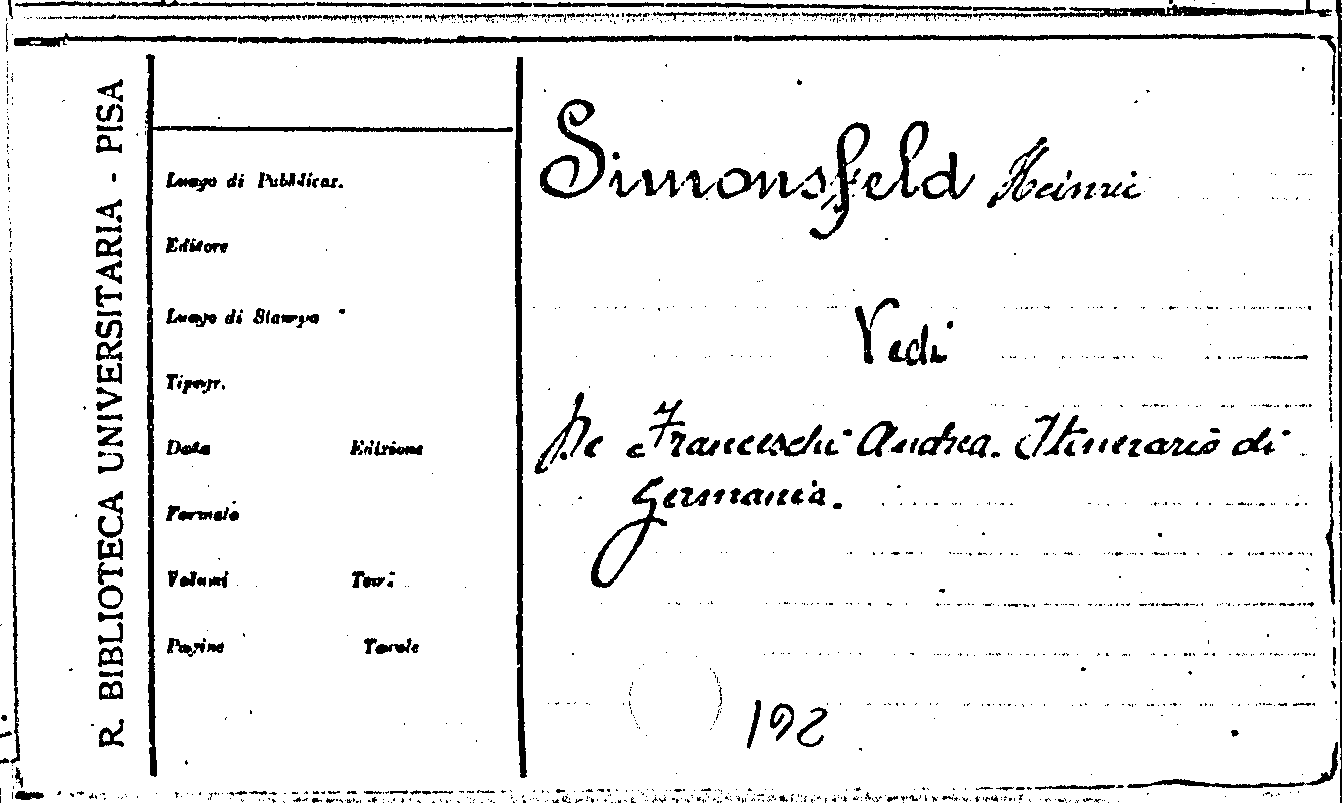 R. BIBLIOTECA UNIVERSITARIA - PISA
Luogo di Pubblicaz.
Editore
Luogo di Stampa
Tipogr.
Data Edizione
Formato
Volumi Tomi
Pagine Tavole
Simonsfeld Heinric
Vedi
De Franceschi Andrea. Itinerario di
Germania.
192